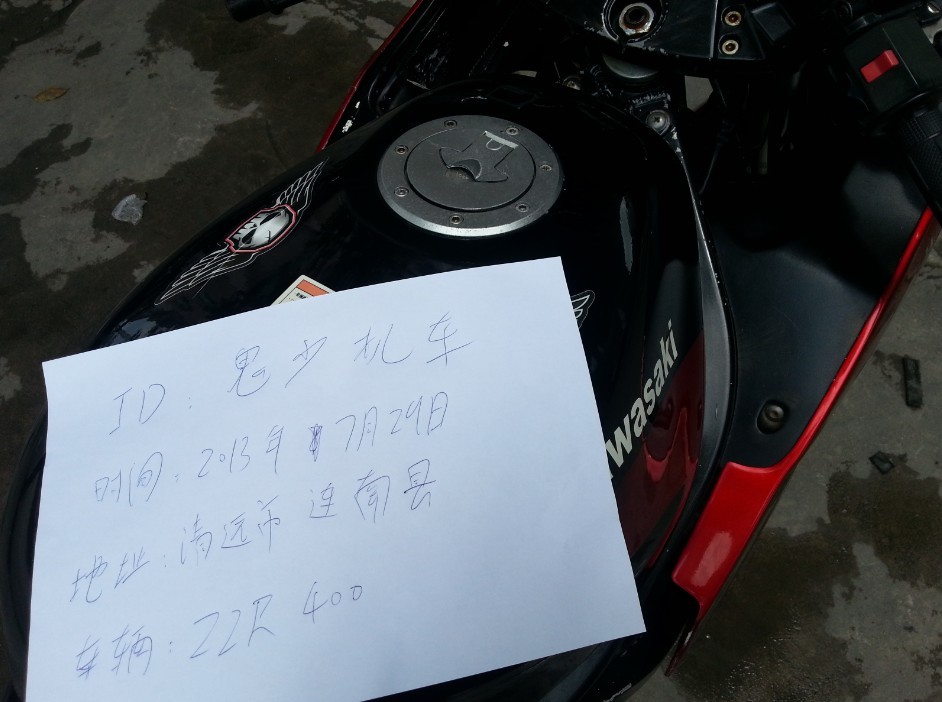 ID：鬼少机车
时间：2013年7月29日
地址：清远市 连南县
车辆：ZZR 400
wasaki